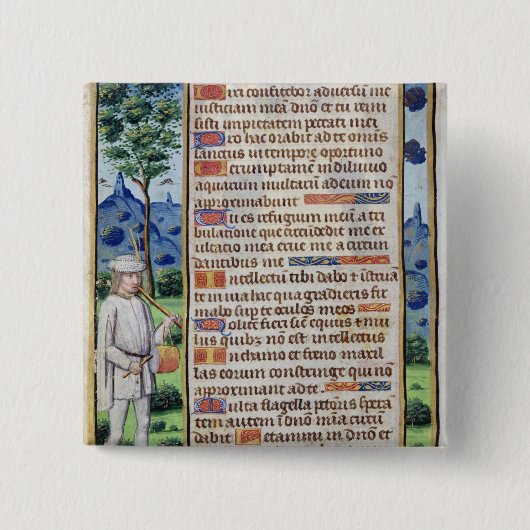 Dixi confitebor adversum me
iusticiam meā dn̄o et tu remi
sisti impietatem peccati mei
Pro hac orabit ad te omnis
sanctus in tempore oportuno
Veruntamen in diluvio
aquarum multarū ad eum nō
approximabunt
Tu es refugium meū a tri
bulatione que circūdedit me ex
ultatio mea erue me a circun
dantibus me
Intellectū tibi dabo et istruā
te in via hac qua gradieris fir
mabo sup te oculos meos
Nolite fieri sicut equus et mu
lus quibz nō est intellectus
In chamo et freno maxil
las eorum constringe qui nō
approximant ad te
Multa flagella pctoris sperā
tem autem ī dn̄o mīa circū
dabit Letamini in dn̄o et